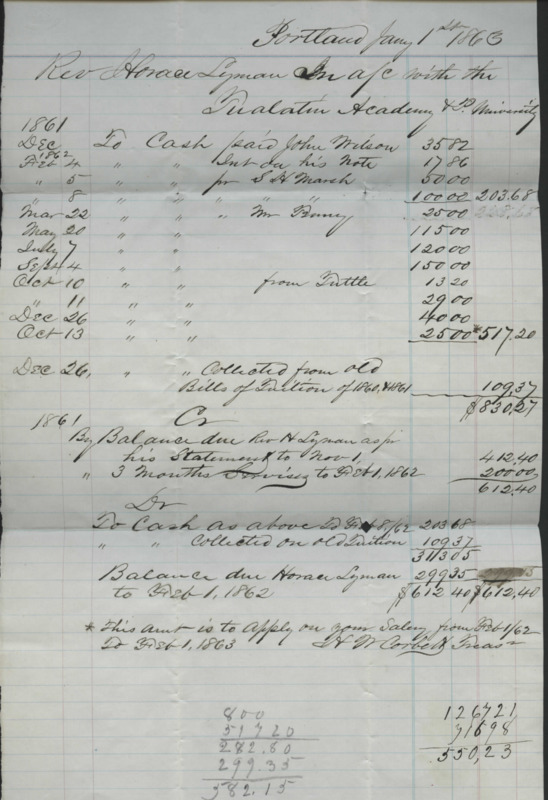 Portland Jany 1st 1863
Rev Horace Lyman In a/c with the
Tualatin Academy & P University
1861
Dec To Cash paid John Wilson 35 82
1862
Feb 4 " " Int on his Note 17 86
" 5 " " pr S H Marsh 50 00
" 8 " " " " 100 00 203.68
Mar 22 " " " Mr 25 00
May 20 " " 115 00
July 7 " " 120 00
Sept 4 " " 150 00
Oct 10 " " from Tuttle 13 20
" 11 " " 29 00
Dec 26 " " 40 00
Oct 13 " " 25 00 *517.20
Dec 26, " " Collected from old
Bills of Tuition of 1860, & 1861 109,37
$830,27
1861 Cr
By Balance due Rev H Lyman as pr
his Statement to Nov 1, 412,40
" 3 Months Services to Feb 1, 1862 200,00
612,40
Dr
To Cash as above To Feb 8/62 203 68
" " Collected on old Tuition 109 37
313 05
Balance due Horace Lyman 299 35
to Feb 1, 1862 $612,40 $612,40
* This amt is to Apply on your Salary from Feb 1/62
To Feb 1, 1863 H W Corbett Treasr
800
517 20
282.80
299.35
582.15
1267 21
716 98
550,23